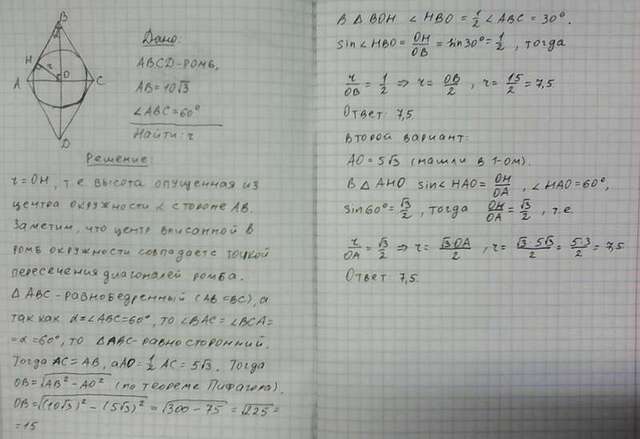 B
α
H
r
A
O
C
D
Дано:
ABCD-ромб,
AB=10√3
∠ABC=60°
Найти: r
Решение:
r=OH, т.е. высота опущенная из
центра окружности к стороне AB.
Заметим, что центр вписанной в
ромб окружности совпадает с точкой
пересечения диагоналей ромба.
△ABC-равнобедренный (AB=BC), а
так как α=∠ABC=60°, то ∠BAC=∠BCA=
=α=60°, то △ABC-равносторонний.
Тогда AC=AB, а AO=1/2 AC=5√3. Тогда
OB=√(AB²-AO²) (по теореме Пифагора).
OB=√((10√3)²-(5√3)²)=√(300-75)=√225=
=15
В △BOH ∠HBO=1/2∠ABC=30°.
sin∠HBO=OH/OB=sin30°=1/2, тогда
r/OB=1/2 ⇒ r=OB/2, r=15/2=7,5
Ответ: 7,5.
Второй вариант:
AO=5√3 (нашли в 1-ом).
В △AHO sin∠HAO=OH/OA, ∠HAO=60°,
sin60°=√3/2, тогда OH/OA=√3/2, т.е.
r/OA=√3/2 ⇒ r=√3·OA/2, r=√3·5√3/2=5·3/2=7,5
Ответ: 7,5.